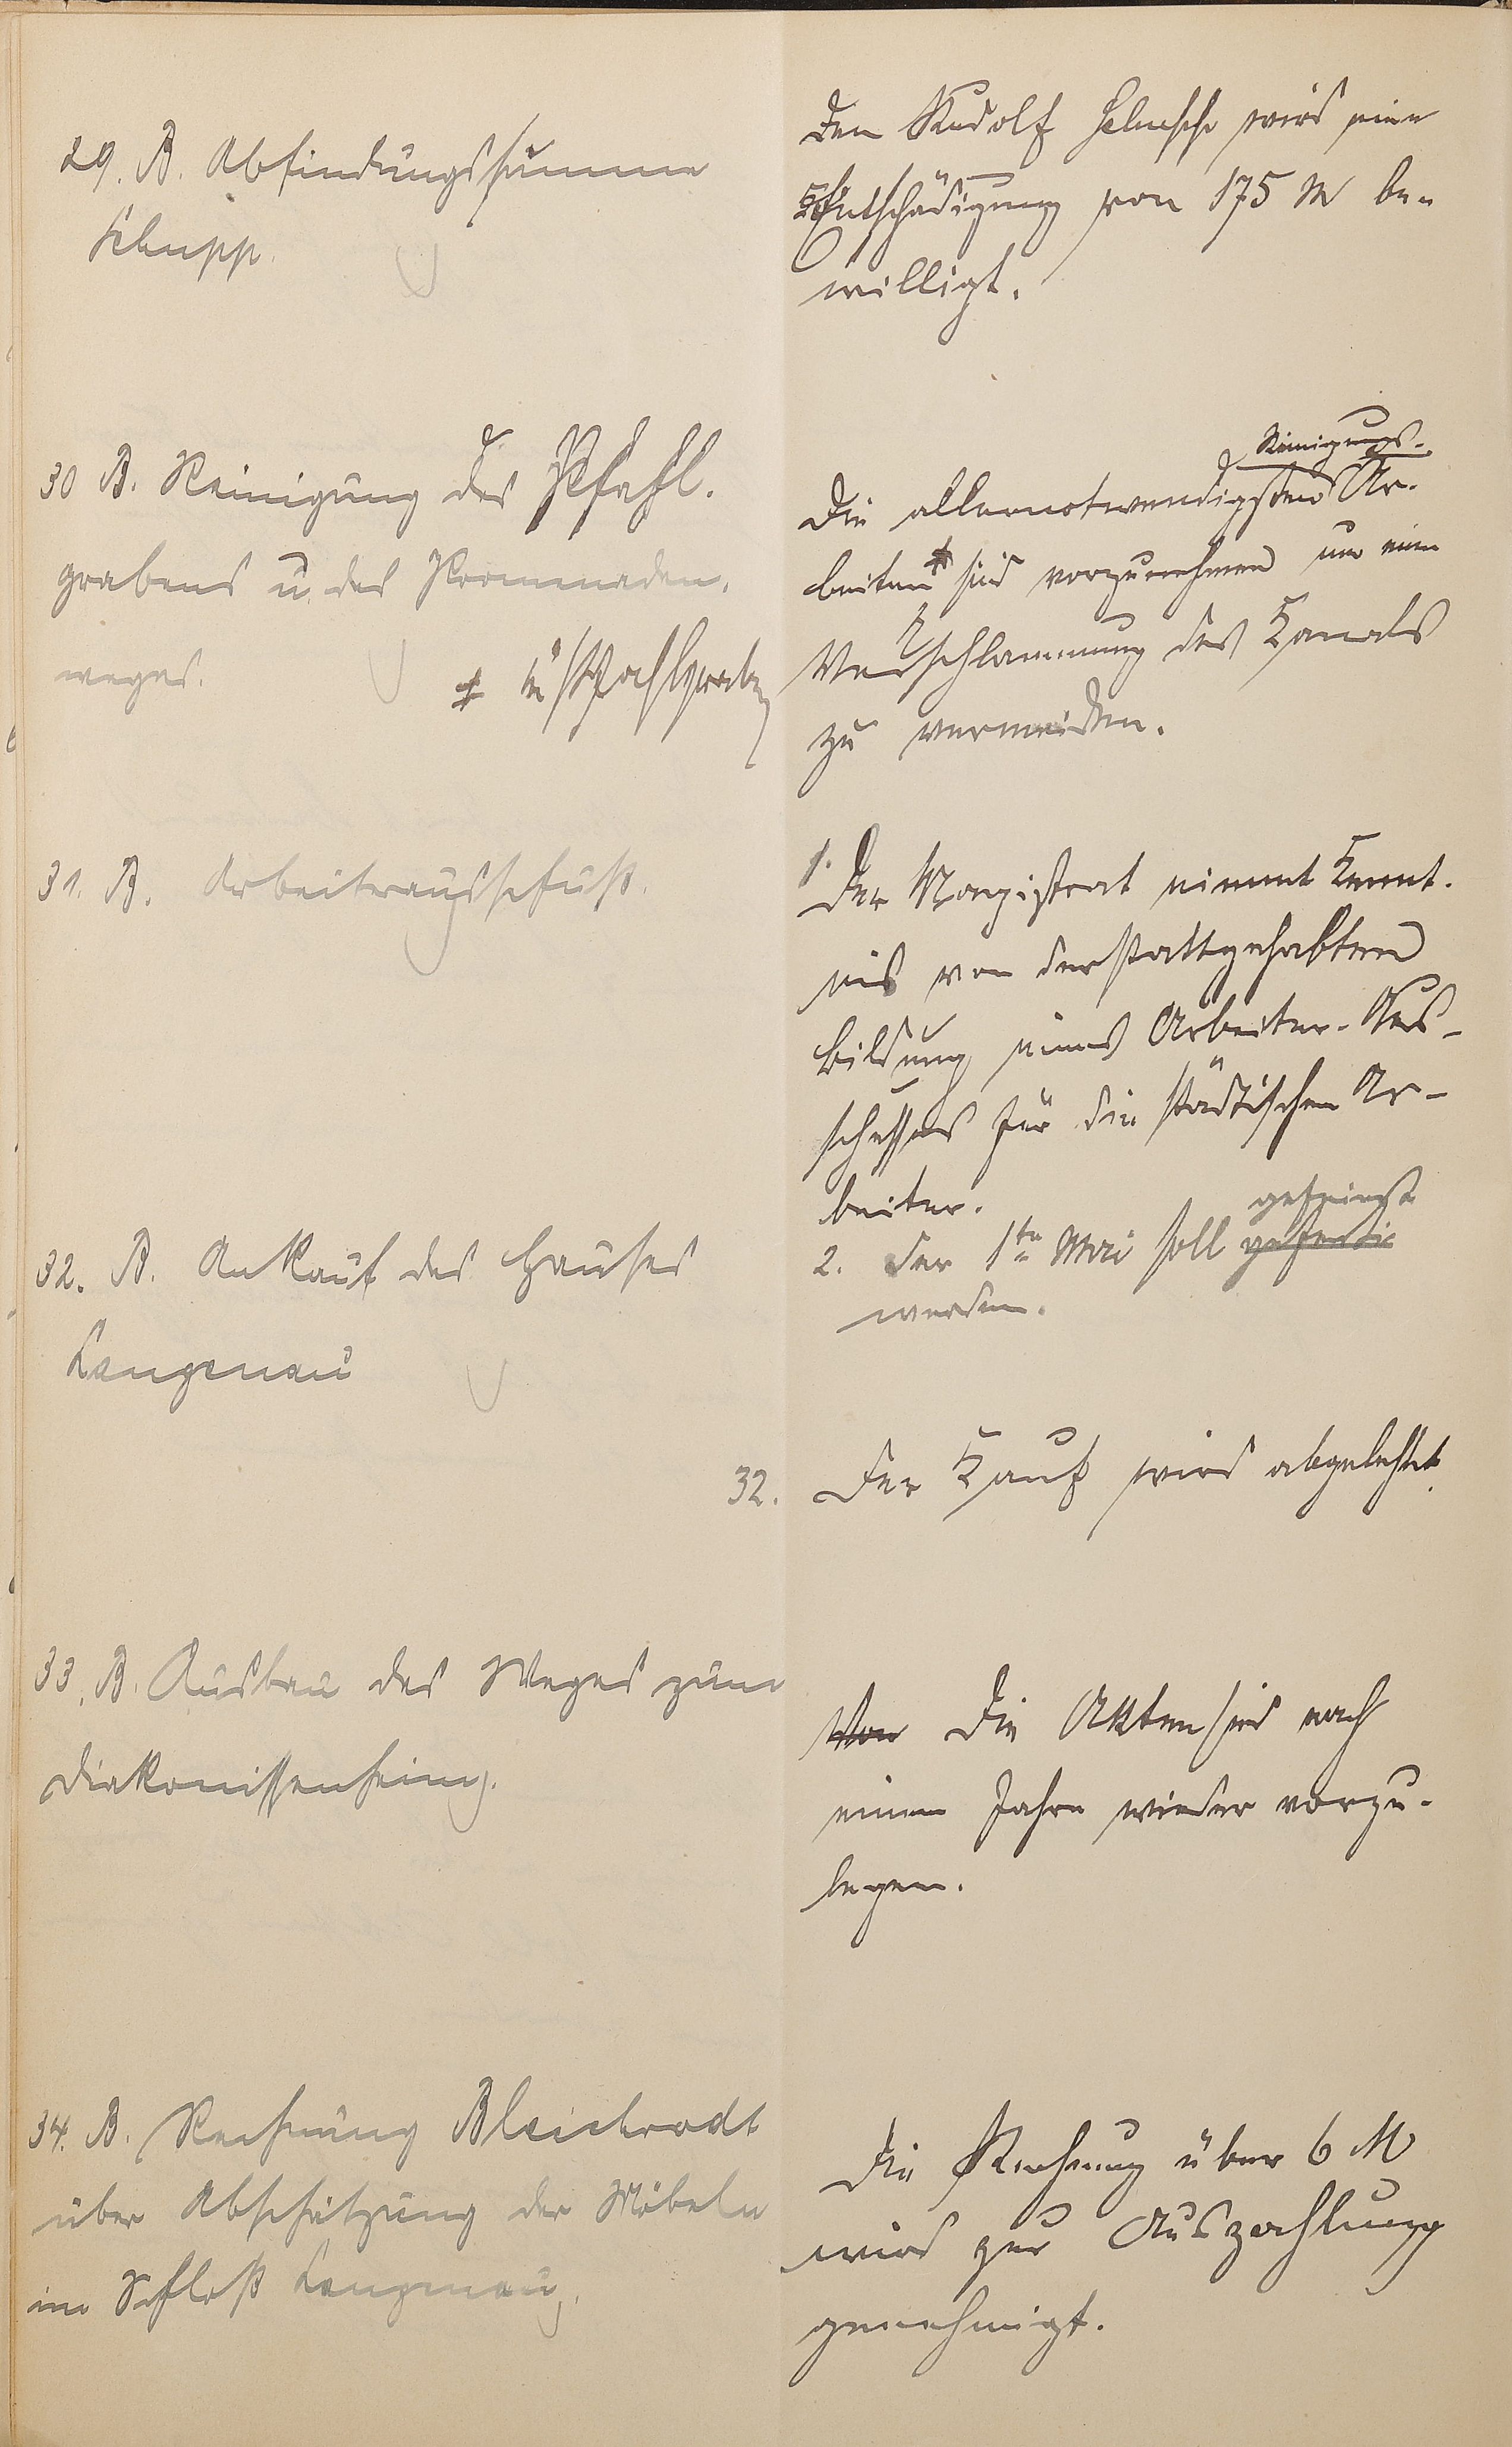 29. B. Abfindungssumme
Klupp.
Dem Rudolf wird eine
Entschädigung von 175 M be-
willigt.
30 B. Reinigung des Pfahl.
grabens u. des Promenaden.
weges.
* u Pfahlgraben
Reinigungs-
Die allernotwendigsten Ar-
beiten * sind vorzunehmen um eine
Verschlammung des Kanals
zu vermeiden.
31. B. Arbeiterausschuß.
1. Der Magistrat nimmt Kennt.
nis von der stattgehabten
Bildung eines Arbeiter-Aus-
schusses für die städtischen Ar-
beiter.
gefeiert
2. Der 1te Mai soll
werden.
32. B. Ankauf des Hauses
Langenau
32. Der Kauf wird abgelehnt.
33. B. Ausbau des Weges zum
Diakonissenheim.
Von Die Akten sind nach
einem Jahre wieder vorzu-
legen.
34. B. Rechnung Bleibrodt
über Abschätzung der Möbeln
im Schloß Langenau.
Die Rechnung über 6 M
wird zur Auszahlung
genehmigt.